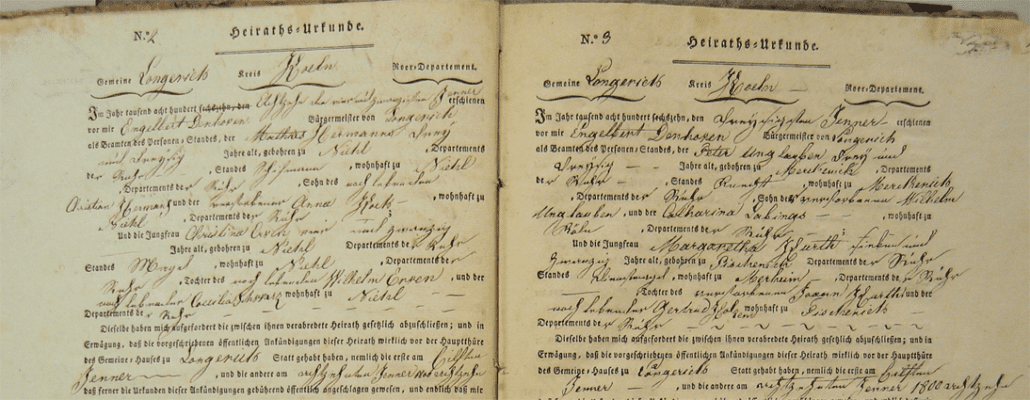 N.º 2
Heiraths-Urkunde.
Gemeine Longerich Kreis Koeln Roer-Departement.
Im Jahr tausend acht hundert sechszehn, den Achtzehn der vier und zwanzigsten Jenner erschienen
vor mir Engelbert Denhoven Bürgermeister von Longerich
als Beamten des Personen-Standes, der Mathias Hermanns Drey
und Dreyßig Jahre alt, gebohren zu Niehl, Departements
der Ruhr, Standes, wohnhaft zu Niehl
, Departements der Ruhr, Sohn des noch lebenden
Christian Hermanns und der verstorbenen Anna, wohnhaft zu
Niehl, Departements der Ruhr
Und die Jungfrau Christina vier und zwanzig
Jahre alt, gebohren zu Niehl Departements der Ruhr
Standes Magd, wohnhaft zu Niehl, Departements der
Ruhr, Tochter des noch lebenden Wilhelm, und der
noch lebenden Cecilia wohnhaft zu Niehl
Departements der Ruhr
Dieselbe haben mich aufgefordert die zwischen ihnen verabredete Heirath gesetzlich abzuschließen; und in
Erwägung, daß die vorgeschriebenen öffentlichen Ankündigungen dieser Heirath wirklich vor der Hauptthüre
des Gemeine-Hauses zu Longerich Statt gehabt haben, nemlich die erste am Eilften
Jenner, und die andere am achtzehnten Jenner
daß ferner die Urkunden dieser Ankündigungen gebührend öffentlich angeschlagen gewesen, und endlich daß mir
N.º 3
Heiraths-Urkunde.
Gemeine Longerich Kreis Koeln Roer-Departement.
Im Jahr tausend acht hundert sechszehn, den Dreyßigsten Jenner erschienen
vor mir Engelbert Denhoven Bürgermeister von Longerich
als Beamten des Personen-Standes, der Peter Unglauben Drey und
Dreyßig Jahre alt, gebohren zu Merkenich Departements
der Ruhr, Standes Knecht, wohnhaft zu Merkenich
, Departements der Ruhr Sohn des verstorbenen Wilhelm
Unglauben, und der Catharina wohnhaft zu
Köln, Departements der Ruhr
Und die Jungfrau Margaretha Wurth Sieben und
zwanzig Jahre alt, gebohren zu Departements der Ruhr
Standes, wohnhaft zu Merheim, Departements der Ruhr
Tochter des verstorbenen Johann und der
noch lebenden Gertrud wohnhaft zu
Departements der Ruhr
Dieselbe haben mich aufgefordert die zwischen ihnen verabredete Heirath gesetzlich abzuschließen; und in
Erwägung, daß die vorgeschriebenen öffentlichen Ankündigungen dieser Heirath wirklich vor der Hauptthüre
des Gemeine-Hauses zu Longerich Statt gehabt haben, nemlich die erste am Eilften
Jenner, und die andere am achtzehnten Jenner 1800 achtzehn